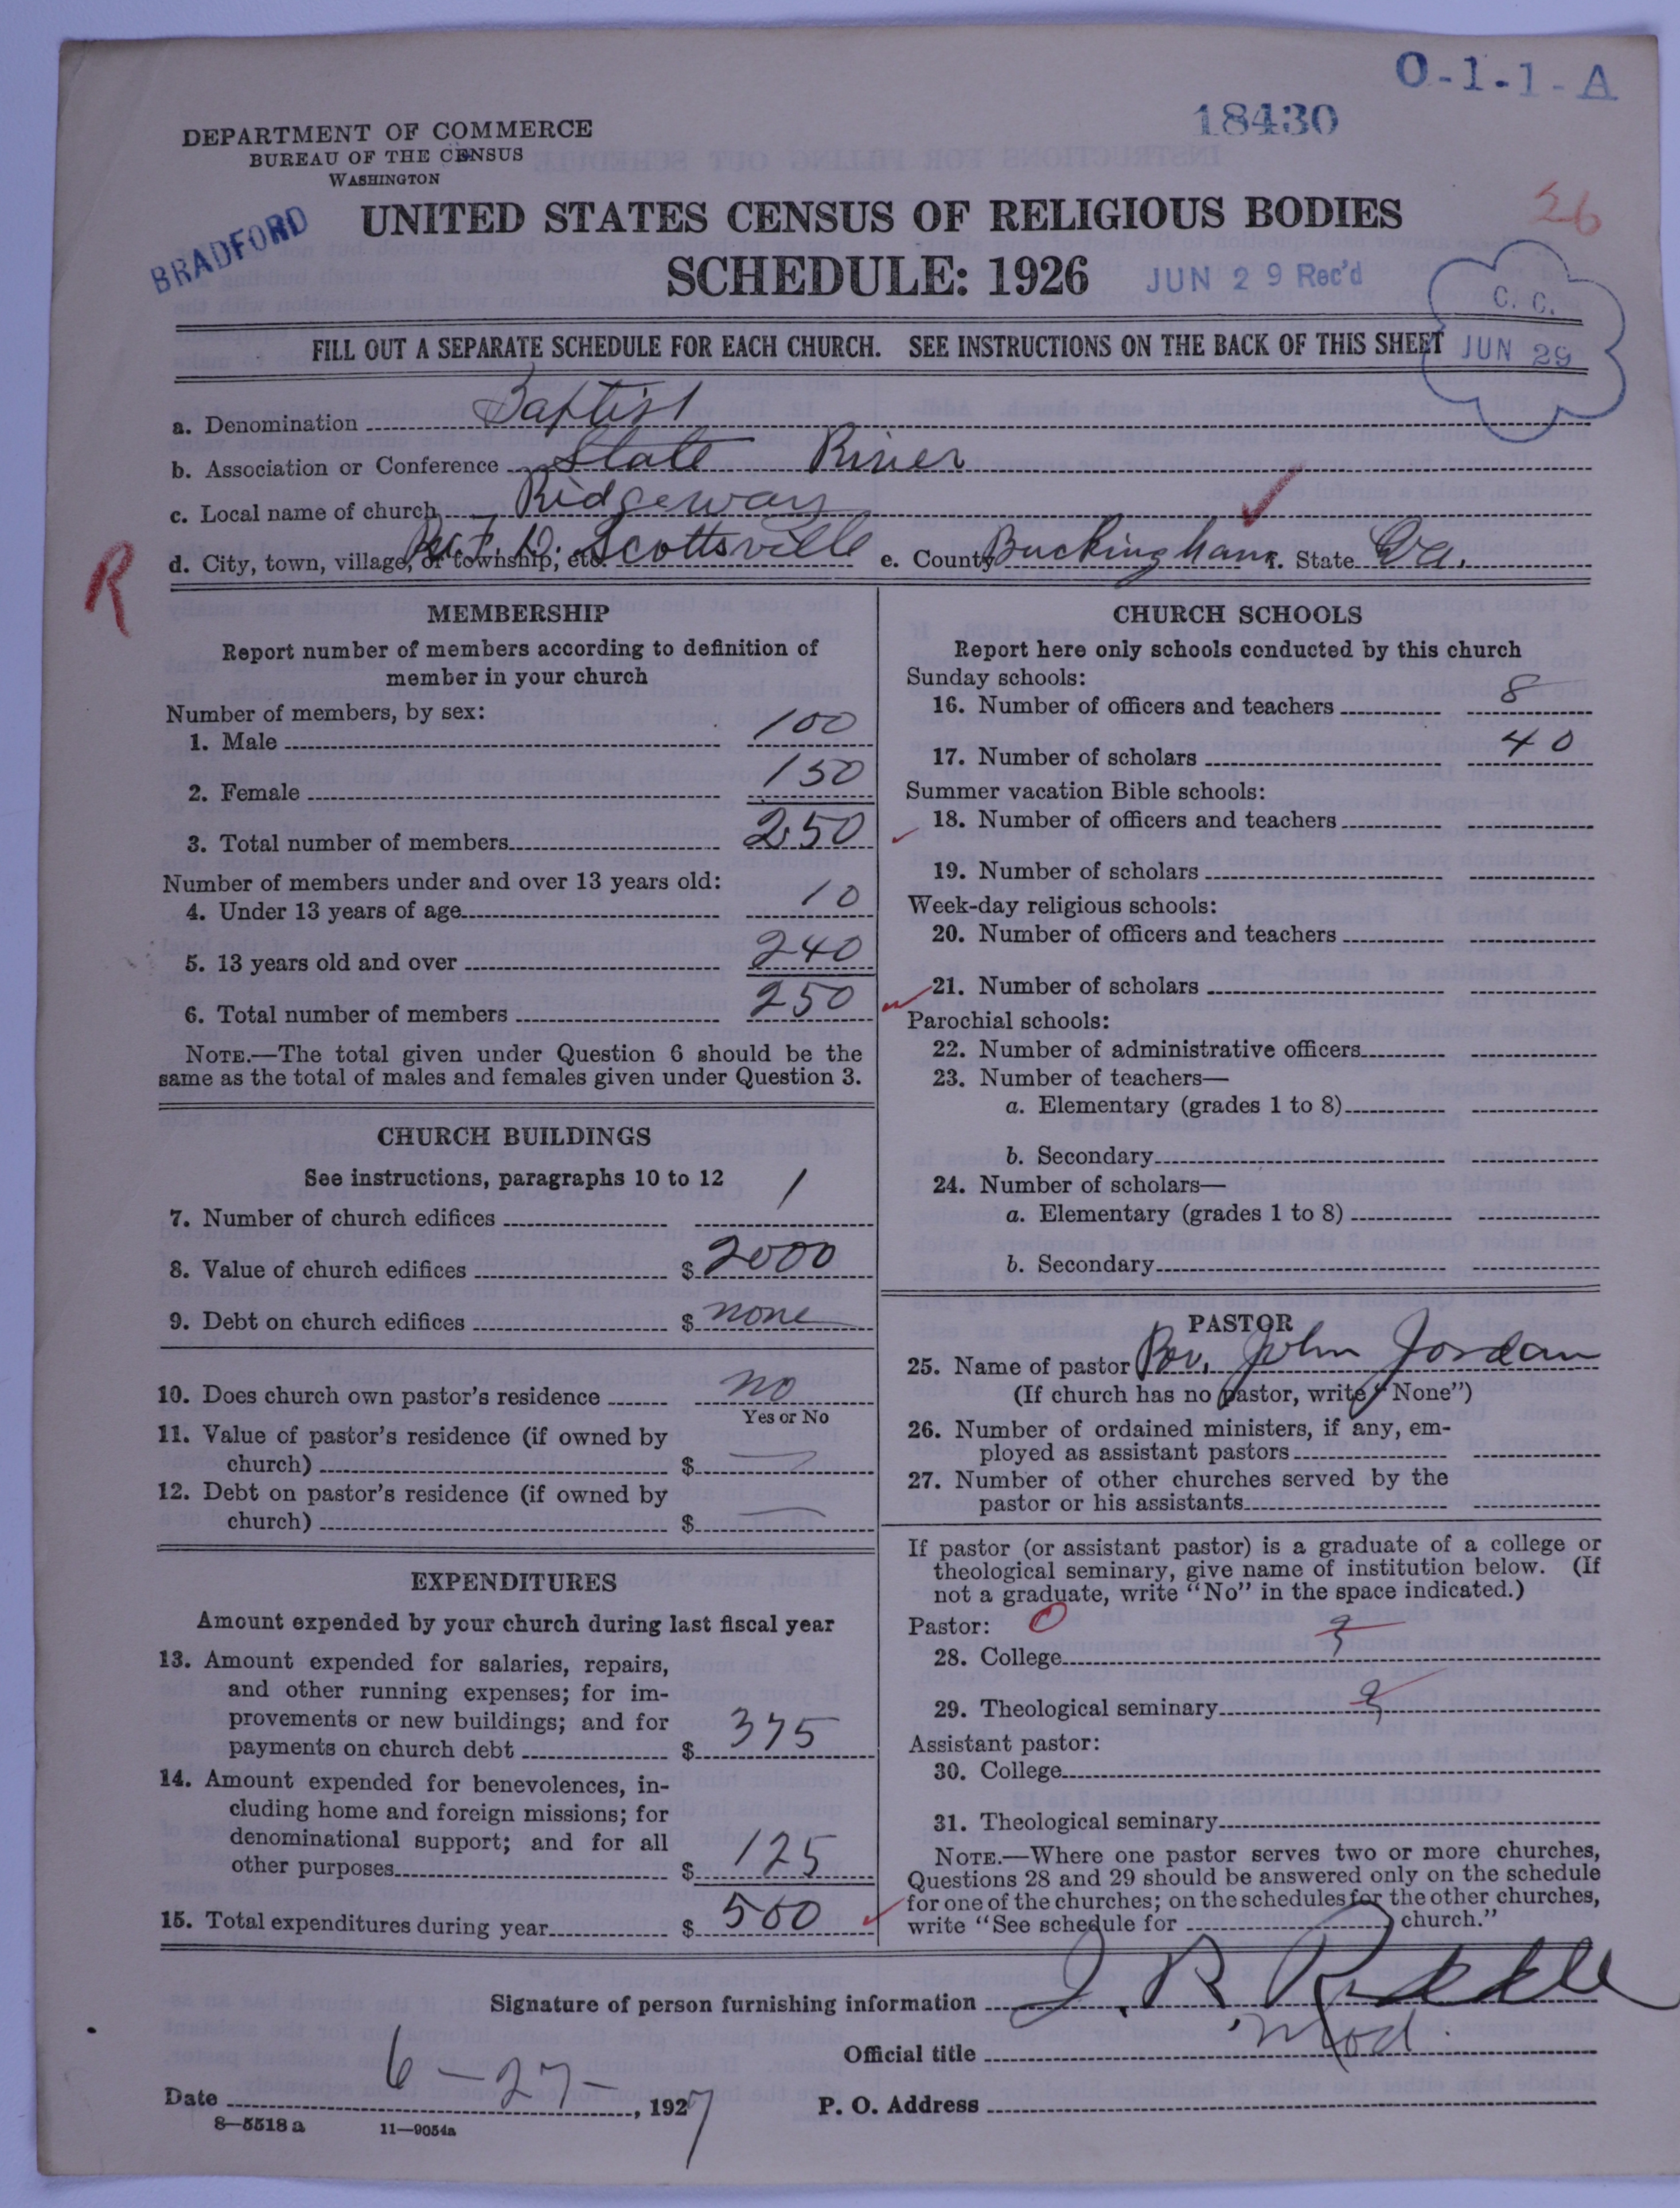 O-1-1-A
18430
DEPARTMENT OF COMMERCE
BUREAU OF THE CENSUS
WASHINGTON
26
BRADFORD
UNITED STATES CENSUS OF RELIGIOUS BODIES
SCHEDULE: 1926
JUN 29 Rec'd
C. C.
JUN 29
FILL OUT A SEPARATE SCHEDULE FOR EACH CHURCH. SEE INSTRUCTIONS ON THE BACK OF THIS SHEET
a. Denomination Baptist
b. Association or Conference Slate River
c. Local name of church Ridgeway
d. City, town, village, or township, etc. R.F.D. Scottsville e. County Buckingham f. State Va.
R
MEMBERSHIP
Report number of members according to definition of
member in your church
Number of members, by sex:
1. Male 100
2. Female 150
3. Total number of members 250
Number of members under and over 13 years old:
4. Under 13 years of age 10
5. 13 years old and over 240
6. Total number of members 250
NOTE.—The total given under Question 6 should be the
same as the total of males and females given under Question 3.
CHURCH BUILDINGS
See instructions, paragraphs 10 to 12
7. Number of church edifices 1
8. Value of church edifices $ 2000
9. Debt on church edifices $ none
10. Does church own pastor's residence no
Yes or No
11. Value of pastor's residence (if owned by
church) $ —
12. Debt on pastor's residence (if owned by
church) $ —
EXPENDITURES
Amount expended by your church during last fiscal year
13. Amount expended for salaries, repairs,
and other running expenses; for im-
provements or new buildings; and for
payments on church debt $ 375
14. Amount expended for benevolences, in-
cluding home and foreign missions; for
denominational support; and for all
other purposes $ 125
15. Total expenditures during year $ 500
CHURCH SCHOOLS
Report here only schools conducted by this church
Sunday schools:
16. Number of officers and teachers 8
17. Number of scholars 40
Summer vacation Bible schools:
18. Number of officers and teachers
19. Number of scholars
Week-day religious schools:
20. Number of officers and teachers
21. Number of scholars
Parochial schools:
22. Number of administrative officers
23. Number of teachers—
a. Elementary (grades 1 to 8)
b. Secondary
24. Number of scholars—
a. Elementary (grades 1 to 8)
b. Secondary
PASTOR
25. Name of pastor Rev. John Jordan
(If church has no pastor, write "None")
26. Number of ordained ministers, if any, em-
ployed as assistant pastors
27. Number of other churches served by the
pastor or his assistants
If pastor (or assistant pastor) is a graduate of a college or
theological seminary, give name of institution below. (If
not a graduate, write "No" in the space indicated.)
Pastor: 0
28. College ?
29. Theological seminary ?
Assistant pastor:
30. College
31. Theological seminary
NOTE.—Where one pastor serves two or more churches,
Questions 28 and 29 should be answered only on the schedule
for one of the churches; on the schedules for the other churches,
write "See schedule for church."
Signature of person furnishing information J. R.
Official title Mod.
Date 6-27-, 1927 P. O. Address
8—5518 a 11—9054a